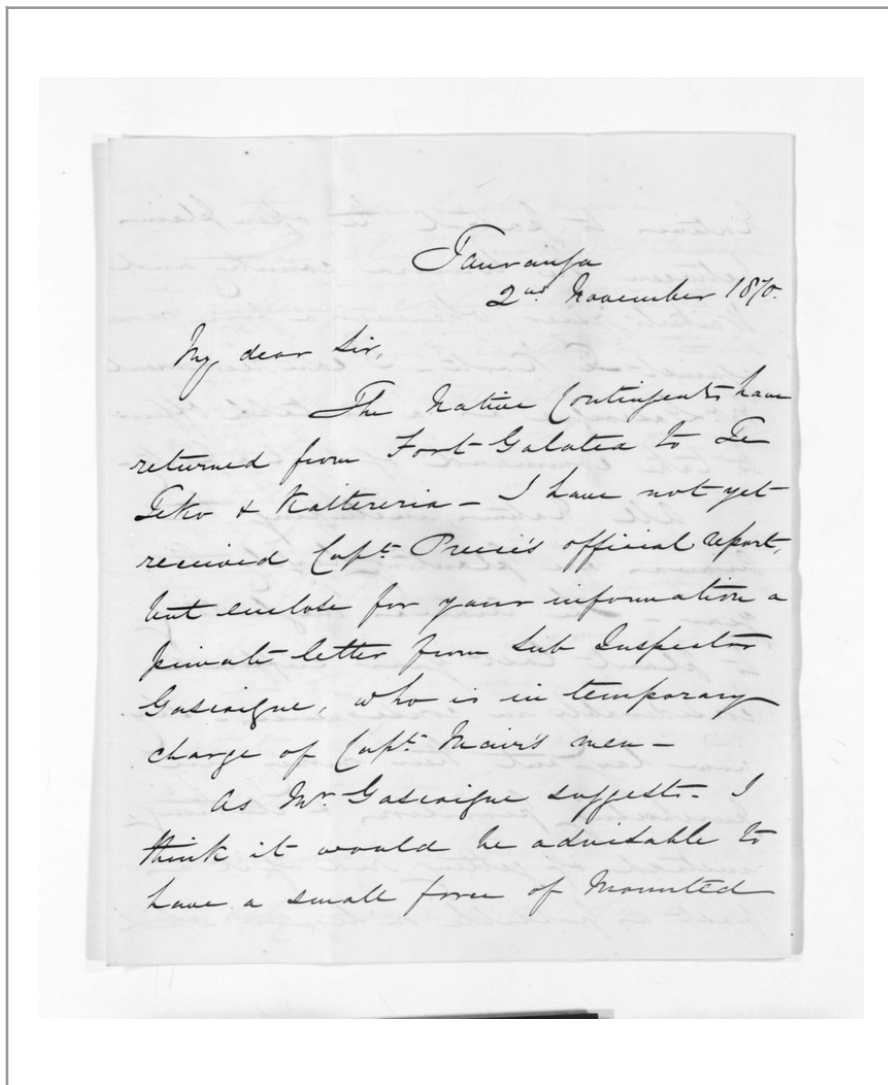 Tauranga
2nd November 1870.
My dear Sir,
The Native Contingents have
returned from Fort Galatea to Te
Teko &
I have not yet
received Capt. Preece's official report,
but enclose for your information a
private letter from Sub Inspector
Gascoigne, who is in temporary
charge of Capt. Mair's men —
As Mr Gascoigne suggests. I
think it would be advisable to
have a small force of Mounted